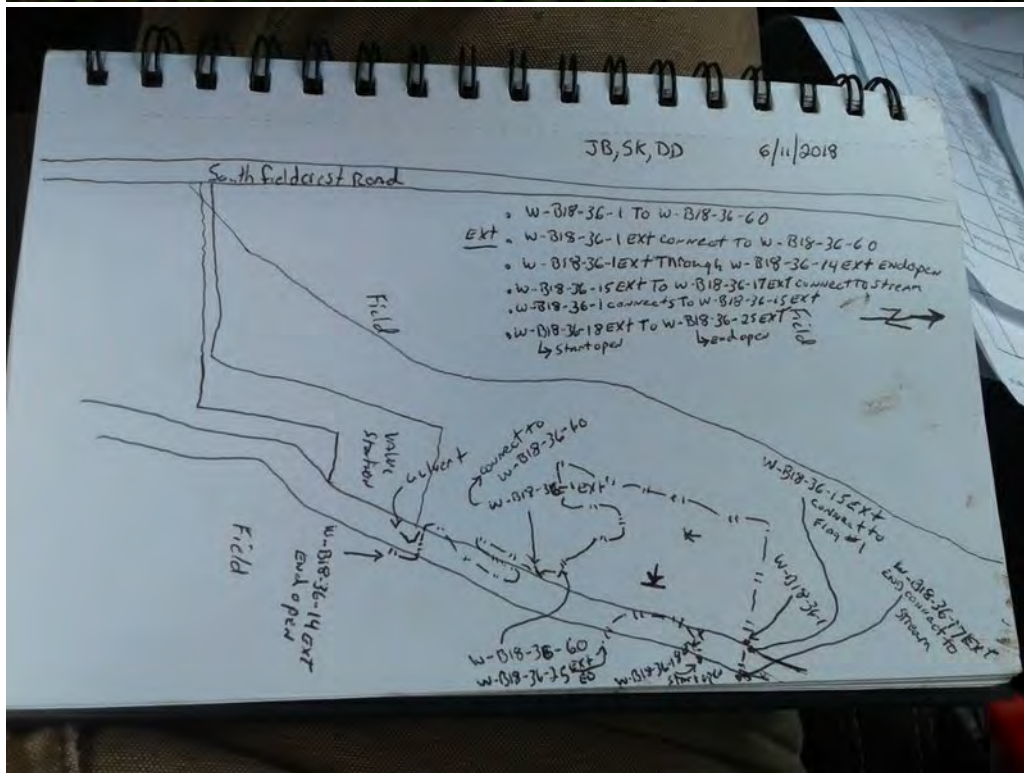 JB, SK, DD 6/11/2018
South Fieldcrest Road
• W-B18-36-1 To W-B18-36-60
Ext • W-B18-36-1 Ext connect To W-B18-36-60
• W-B18-36-1Ext Through W-B18-36-14Ext Endopen
• W-B18-36-15Ext To W-B18-36-17Ext connect To stream
• W-B18-36-1 connects To W-B18-36-15Ext
• W-B18-36-18Ext To W-B18-36-25Ext
↳ Start open ↳ end open
Field
Field
N
Valve
Station
culvert
connect to
W-B18-36-60
W-B18-36-1Ext
W-B18-36-15Ext
connect to
Flag #1
W-B18-36-1
W-B18-36-17Ext
End connect to
Stream
Field
W-B18-36-14 Ext
End open
W-B18-36-60
W-B18-36-25 Ext
EO
W-B18-36-18